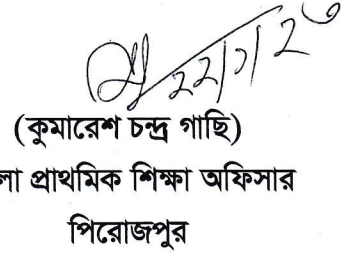 (কুমারেশ চন্দ্র গাছি)
লা প্রাথমিক শিক্ষা অফিসার
পিরোজপুর